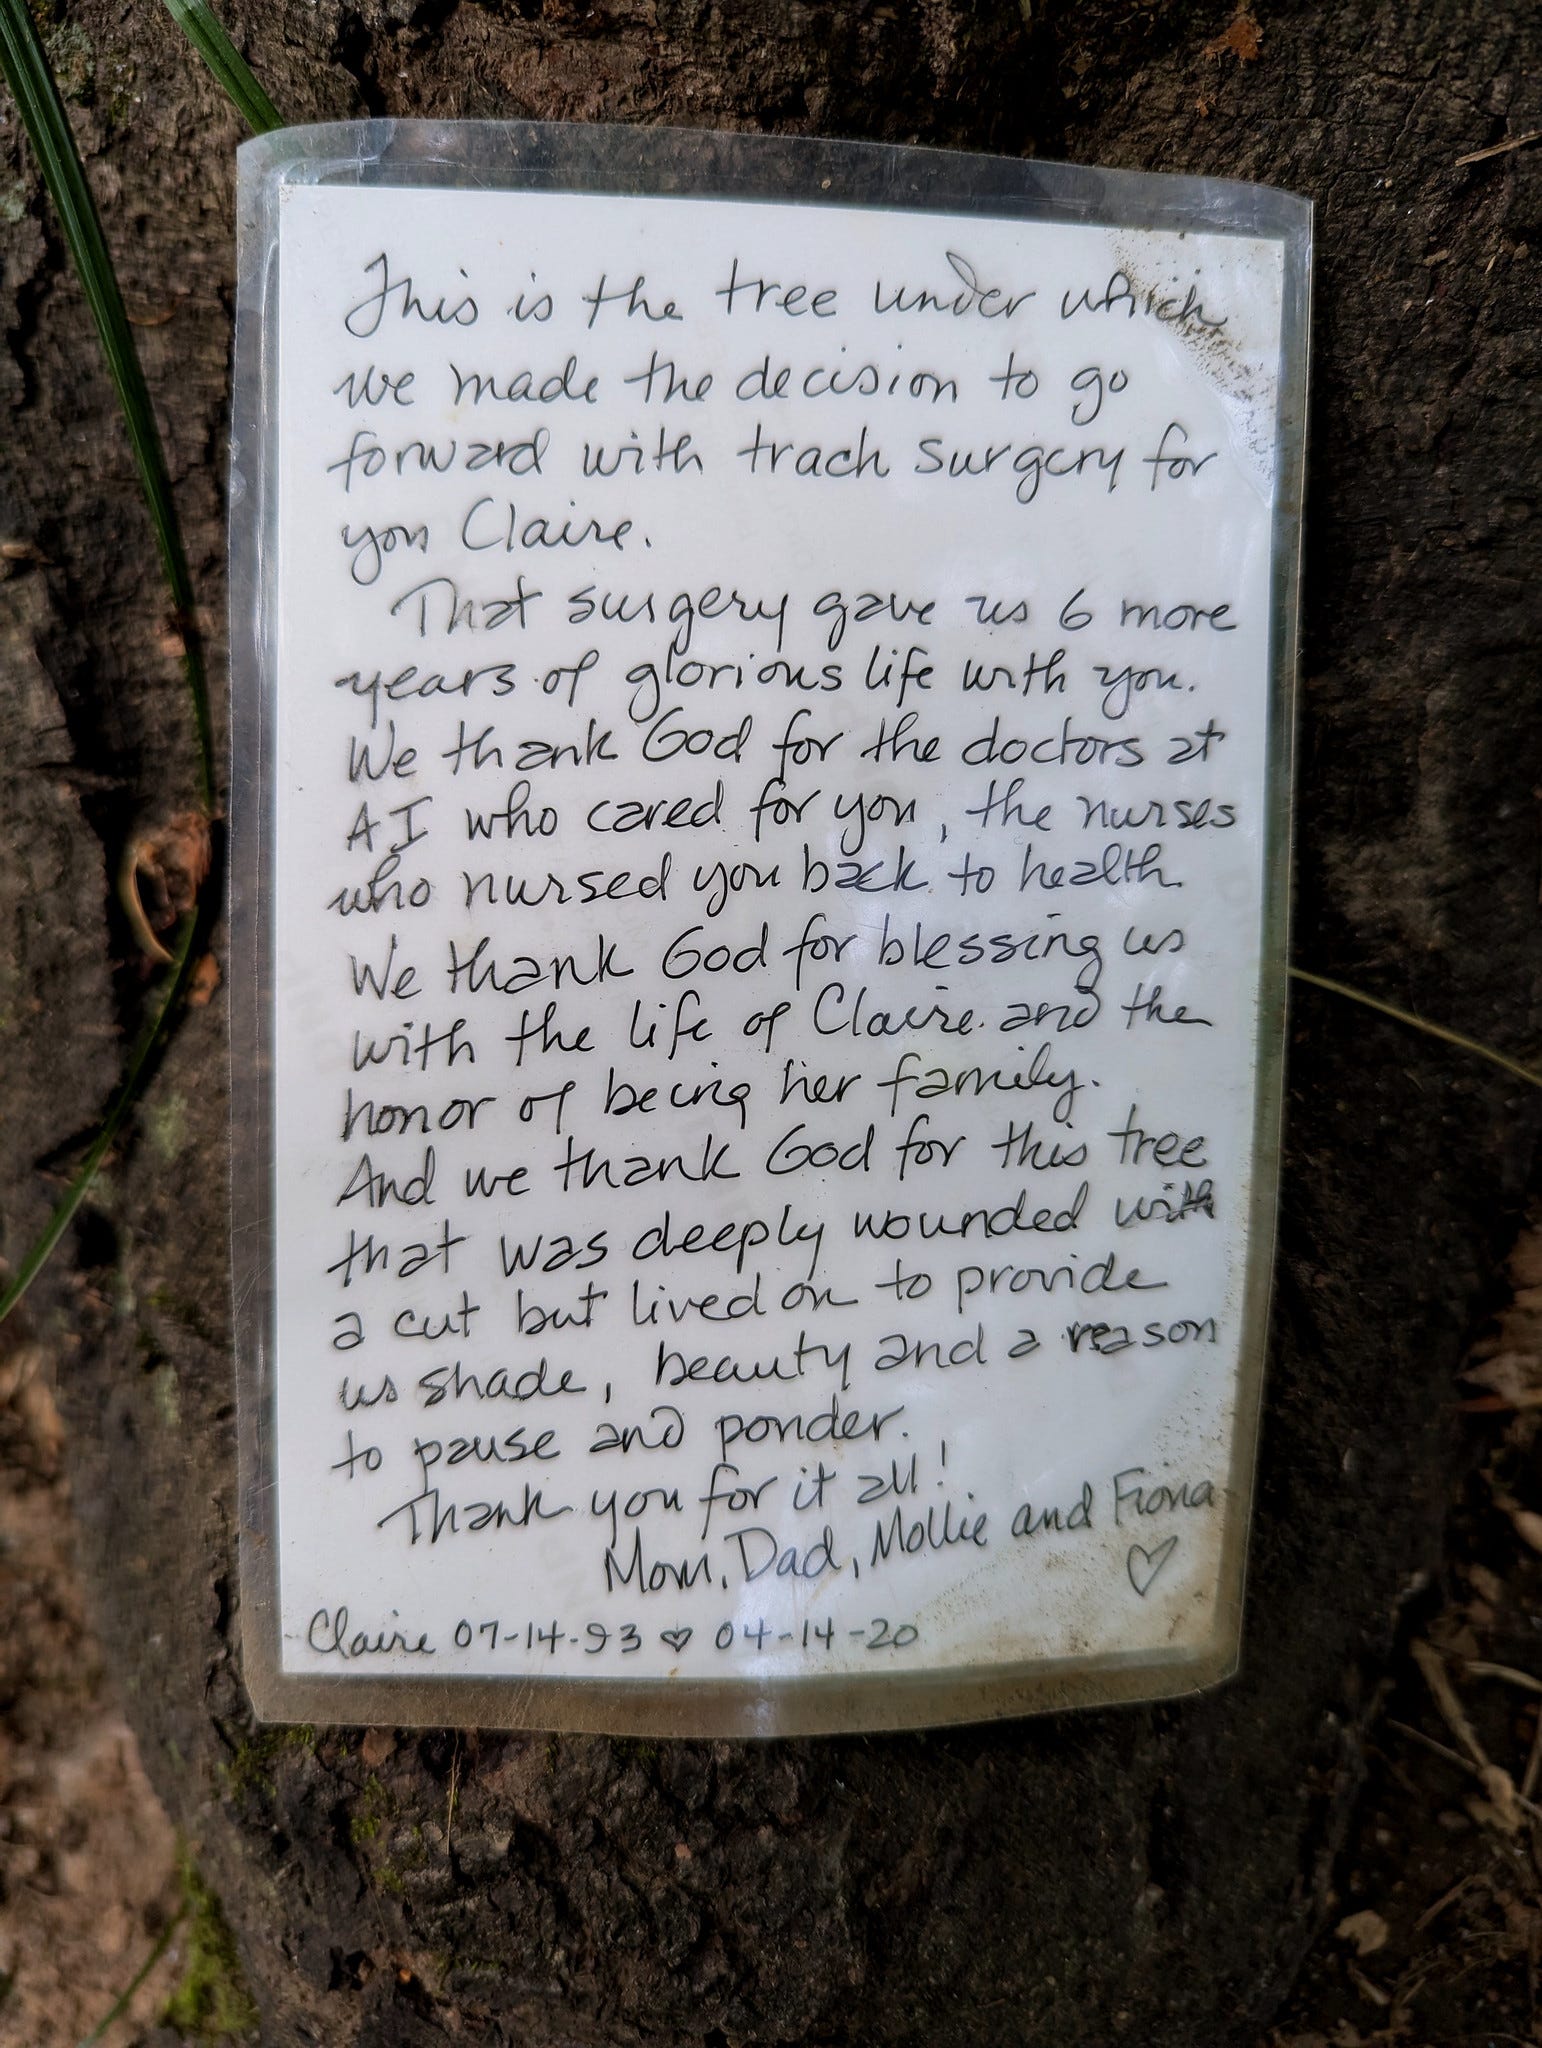 This is the tree under which
we made the decision to go
forward with trach surgery for
you Claire.
That surgery gave us 6 more
years of glorious life with you.
We thank God for the doctors at
AI who cared for you, the nurses
who nursed you back to health.
We thank God for blessing us
with the life of Claire and the
honor of being her family.
And we thank God for this tree
that was deeply wounded with
a cut but lived on to provide
us shade, beauty and a reason
to pause and ponder.
Thank you for it all!
Mom, Dad, Mollie and Fiona
♡
Claire 07-14-93 ♡ 04-14-20